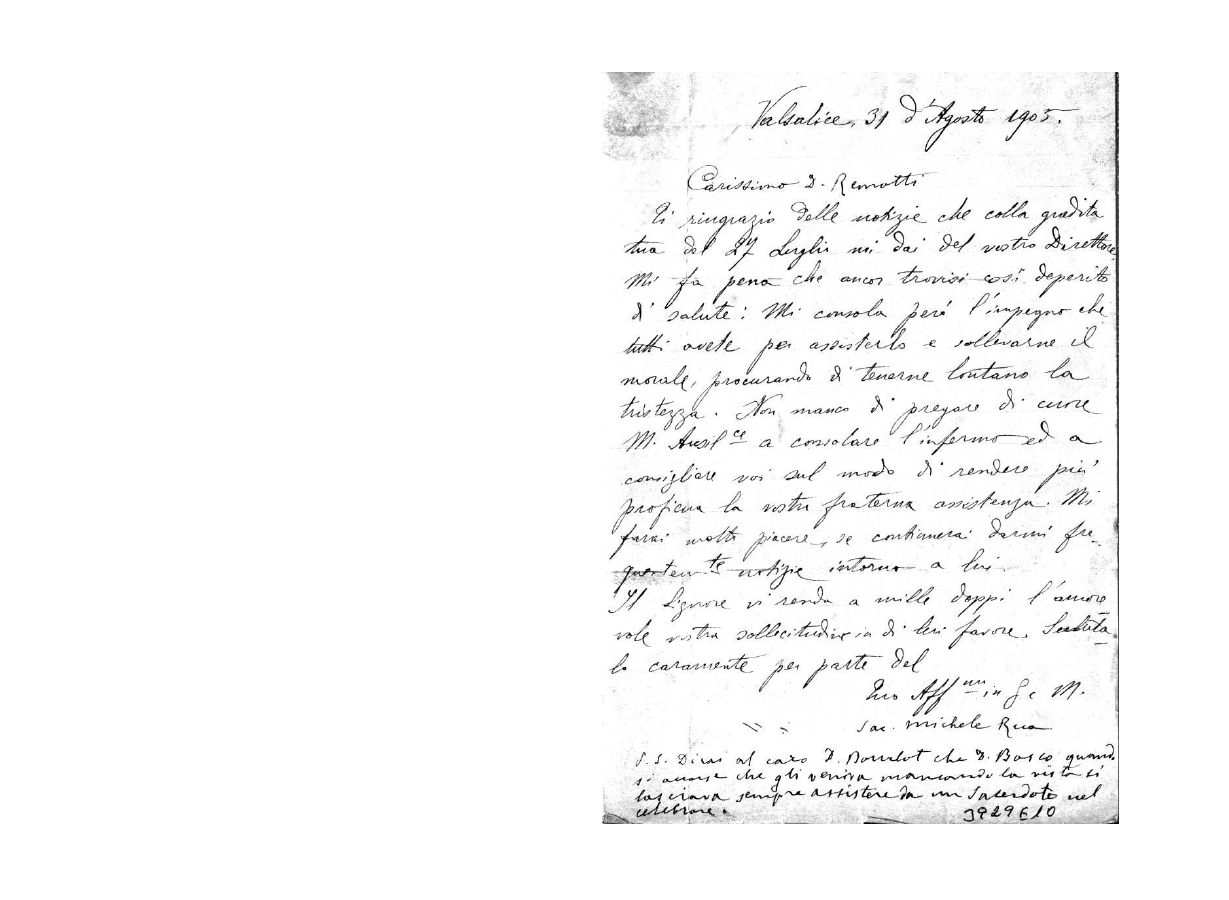 Valsalice, 31 d'Agosto 1905.
Carissimo D. Remotti
Ti ringrazio delle notizie che colla gradita
tua del 27 Luglio mi dai del vostro Direttore.
Mi fa pena che ancor trovisi così deperito
di salute: Mi consola però l'impegno che
tutti avete per assisterlo e sollevarne il
morale, procurando di tenerne lontano la
tristezza. Non manco di pregare di cuore
M. Ausil ce a consolare l'infermo ed a
consigliare voi sul modo di rendere più
proficua la vostra fraterna assistenza. Mi
farai molto piacere, se continuerai darmi fre-
quentem te notizie intorno a lui.
Il Signore vi renda a mille doppi l'amore
vole vostra sollecitudine in di lui favore. Saluta
lo caramente per parte del
Tuo Aff mo in G e M.
Sac. Michele Rua
P.S. Dirai al caro D. che D. Bosco quando
si accorse che gli veniva mancando la vista si
lasciava sempre assistere da un Sacerdote nel
celebrare.
3929E10